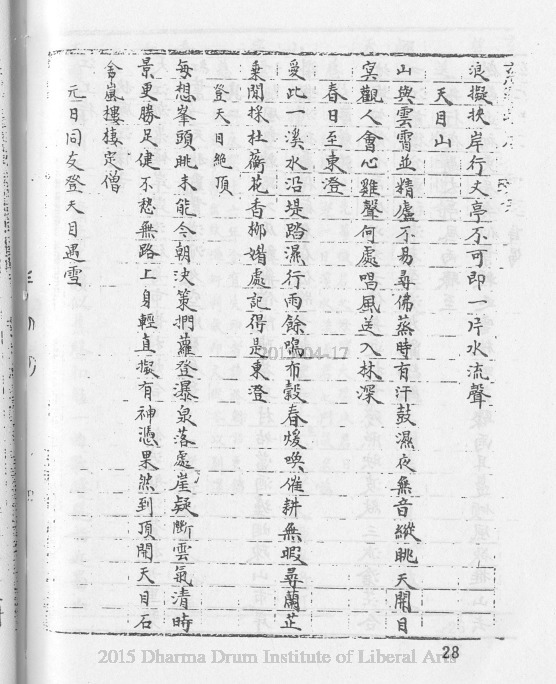 浪擬挾岸行丈亭不可即一片水流聲
天目山
山與雲霄並精廬不易尋佛蒸時有汗鼓濕夜無音縱眺天開目
冥觀人會心雞聲何處唱風送入林深
春日至東澄
愛此一溪水沿堤踏濕行雨餘鳴布穀春煖喚催耕無暇尋蘭芷
乘閒採杜蘅花香柳媚處記得是東澄
登天目絶頂
每想峯頭眺未能今朝決策捫蘿登瀑泉落處崖疑斷雲氣清時
景更勝足健不愁無路上身輕直擬有神憑果然到頂開天目石
舍嵐樓棲定僧
元日同友登天目遇雪
2015-04-17
28
2015 Dharma Drum Institute of Liberal Arts